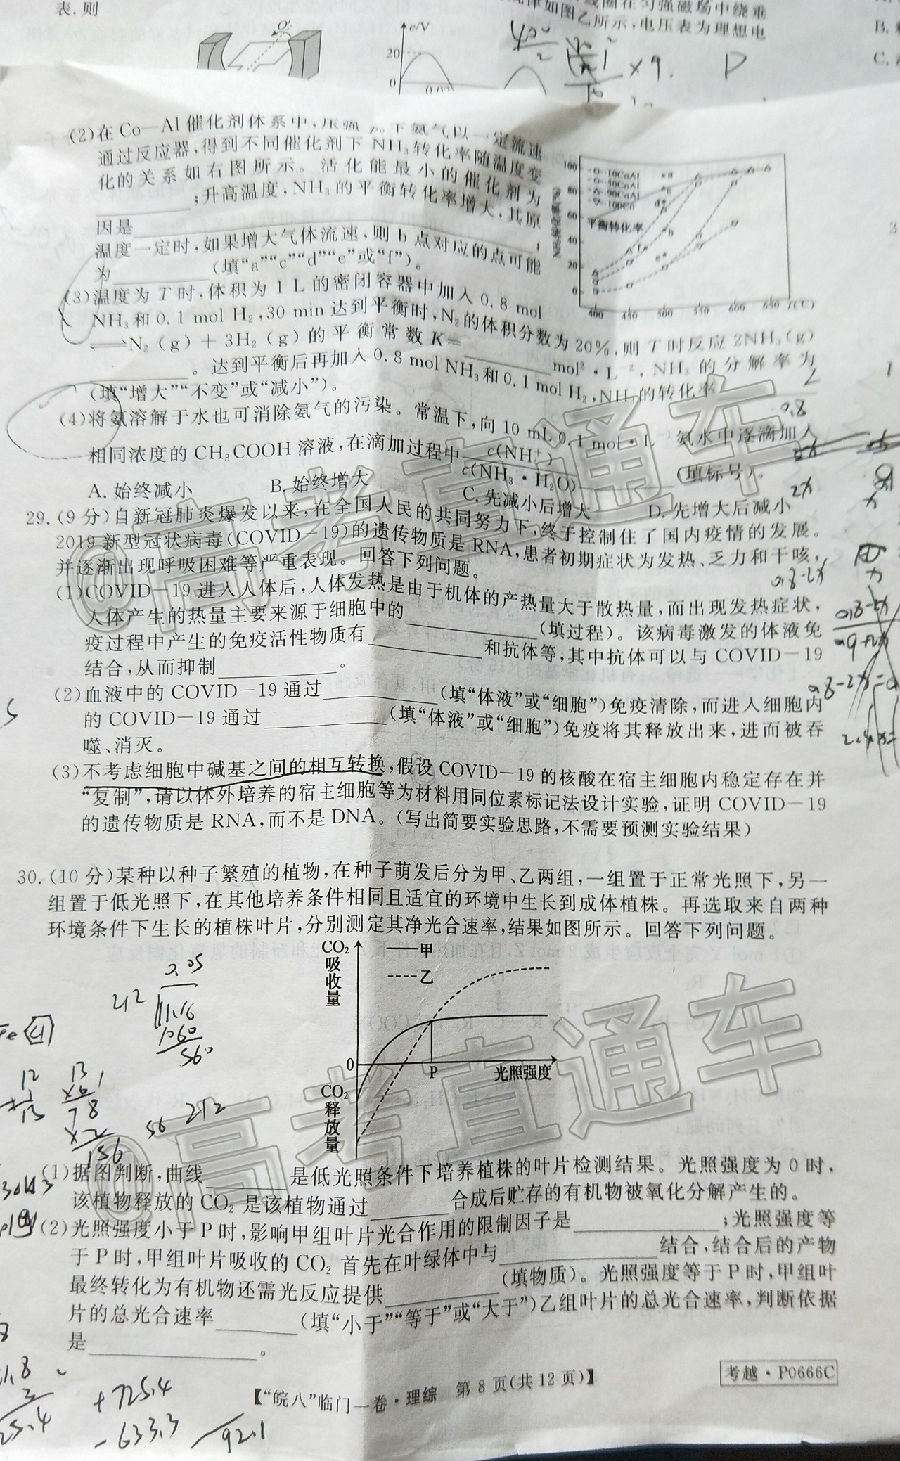 表.则
圈在匀强磁场中绕垂
如图乙所示,电压表为理想电
e/V
20
0
B.
C.
(2)在Co—Al催化剂体系中,压强 下氨气以一定流速
通过反应器,得到不同催化剂下NH₃转化率随温度变
化的关系如右图所示。活化能最小的催化剂为
________;升高温度,NH₃的平衡转化率增大,其原
因是________;
温度一定时,如果增大气体流速,则b点对应的点可能
为________(填“a”“c”“d”“e”或“f”)。
100
80
60
40
20
0
平衡转化率
400 450 500 550 600 650 t(℃)
(3)温度为T时,体积为1 L的密闭容器中加入0.8 mol
NH₃和0.1 mol H₂,30 min达到平衡时,N₂的体积分数为20%,则T时反应2NH₃(g)
⇌N₂(g)+3H₂(g)的平衡常数K=________mol²·L⁻²,NH₃的分解率为
________。达到平衡后再加入0.8 mol NH₃和0.1 mol H₂,NH₃的转化率________
(填“增大”“不变”或“减小”)。
(4)将氨溶解于水也可消除氨气的污染。常温下,向10 mL 0.1 mol·L 氨水中逐滴加入
相同浓度的CH₃COOH溶液,在滴加过程中c(NH₄⁺)/c(NH₃·H₂O)________(填标号)。
A.始终减小 B.始终增大 C.先减小后增大 D.先增大后减小
29.(9分)自新冠肺炎爆发以来,在全国人民的共同努力下,终于控制住了国内疫情的发展。
2019新型冠状病毒(COVID—19)的遗传物质是RNA,患者初期症状为发热、乏力和干咳,
并逐渐出现呼吸困难等严重表现。回答下列问题。
(1)COVID—19进入人体后,人体发热是由于机体的产热量大于散热量,而出现发热症状,
人体产生的热量主要来源于细胞中的________(填过程)。该病毒激发的体液免
疫过程中产生的免疫活性物质有________和抗体等,其中抗体可以与COVID—19
结合,从而抑制________。
(2)血液中的COVID—19通过________(填“体液”或“细胞”)免疫清除,而进入细胞内
的COVID—19通过________(填“体液”或“细胞”)免疫将其释放出来,进而被吞
噬、消灭。
(3)不考虑细胞中碱基之间的相互转换,假设COVID—19的核酸在宿主细胞内稳定存在并
“复制”,请以体外培养的宿主细胞等为材料用同位素标记法设计实验,证明COVID—19
的遗传物质是RNA,而不是DNA。(写出简要实验思路,不需要预测实验结果)
30.(10分)某种以种子繁殖的植物,在种子萌发后分为甲、乙两组,一组置于正常光照下,另一
组置于低光照下,在其他培养条件相同且适宜的环境中生长到成体植株。再选取来自两种
环境条件下生长的植株叶片,分别测定其净光合速率,结果如图所示。回答下列问题。
CO₂吸收量
甲
乙
0
P
光照强度
CO₂释放量
(1)据图判断,曲线________是低光照条件下培养植株的叶片检测结果。光照强度为0时,
该植物释放的CO₂是该植物通过________合成后贮存的有机物被氧化分解产生的。
(2)光照强度小于P时,影响甲组叶片光合作用的限制因子是________;光照强度等
于P时,甲组叶片吸收的CO₂首先在叶绿体中与________结合,结合后的产物
最终转化为有机物还需光反应提供________(填物质)。光照强度等于P时,甲组叶
片的总光合速率________(填“小于”“等于”或“大于”)乙组叶片的总光合速率,判断依据
是________。
【“皖八”临门一卷·理综 第8页(共12页)】
考越·P0666C
@高考直通车
@高考直通车
+725.4
-633.3
92.1